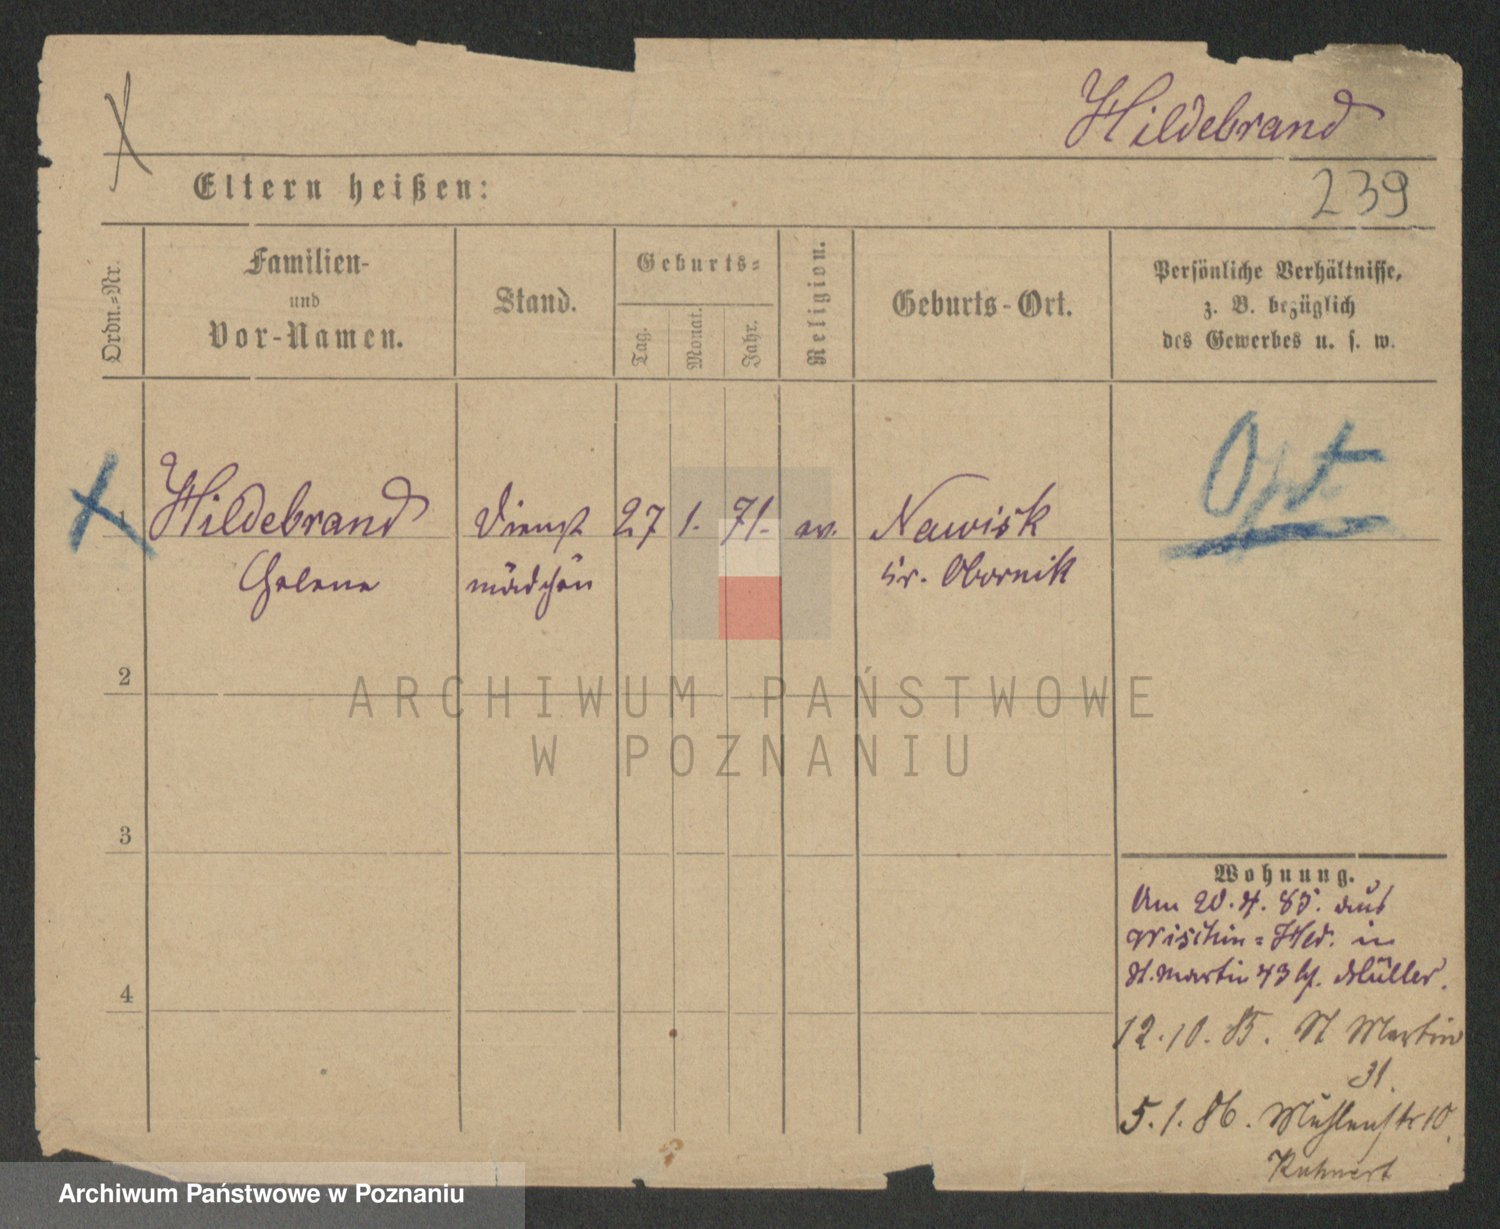 Hildebrand
Eltern heißen:
239
Ordn.-Nr.
Familien-
und
Vor-Namen.
Stand.
Geburts-
Tag.
Monat.
Jahr.
Religion.
Geburts-Ort.
Persönliche Verhältnisse,
z. B. bezüglich
des Gewerbes u. s. w.
1
Hildebrand
Helene
Dienst
mädchen
27
1.
71.
ev.
Nawisk
Kr. Obornik
Opt
2
ARCHIWUM PAŃSTWOWE
W POZNANIU
3
Wohnung.
Am 20.4.85. aus
in
St. Martin 43 b/. Müller.
4
12.10.85. St Martin
31.
5.1.86. Mühlenstr 10.
Kuhnert
Archiwum Państwowe w Poznaniu